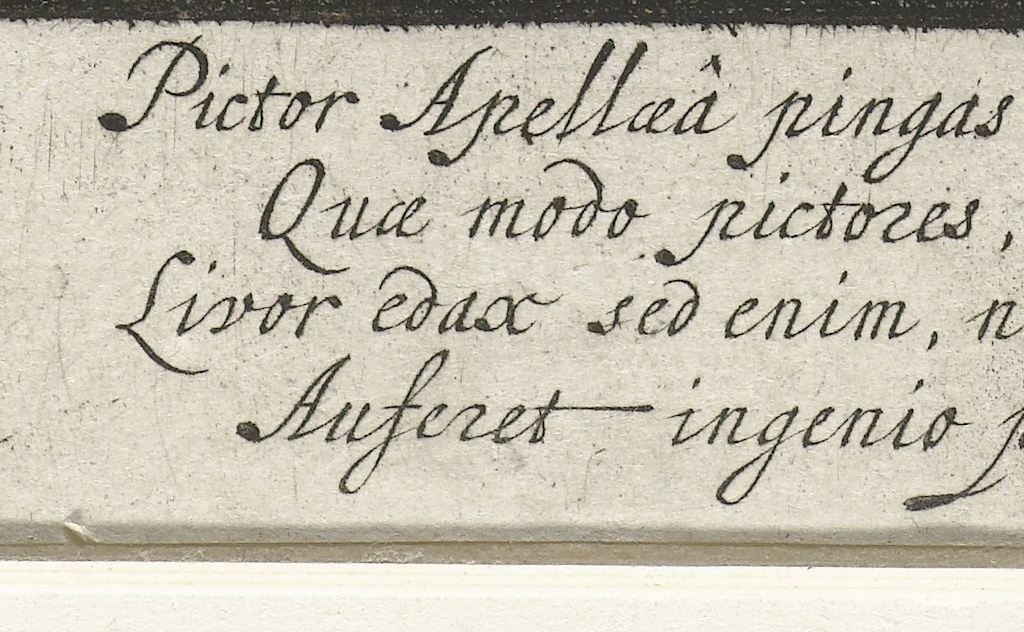 Pictor Apellæâ pingas
Quæ modo pictores,
Livor edax sed enim, n
Auferet ingenio p